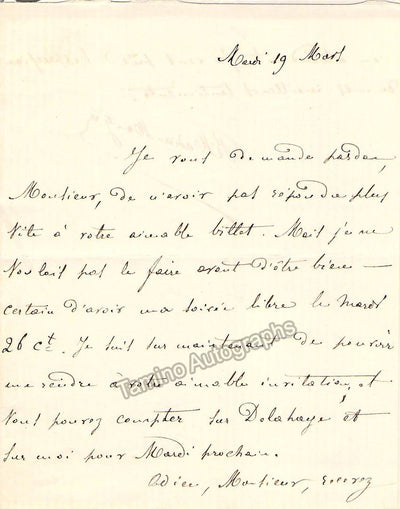 Mardi 19 Mars
Je vous demande pardon,
Monsieur, de n'avoir pas répondu plus
vite à votre aimable billet. Mais je ne
voulais pas le faire avant d'être bien —
certain d'avoir ma soirée libre le mardi
26 ct. Je suis sur maintenant de pouvoir
me rendre à votre aimable invitation, et
vous pouvez compter sur Delahaye et
sur moi pour Mardi prochain.
Adieu, Monsieur, recevez
Tamino Autographs